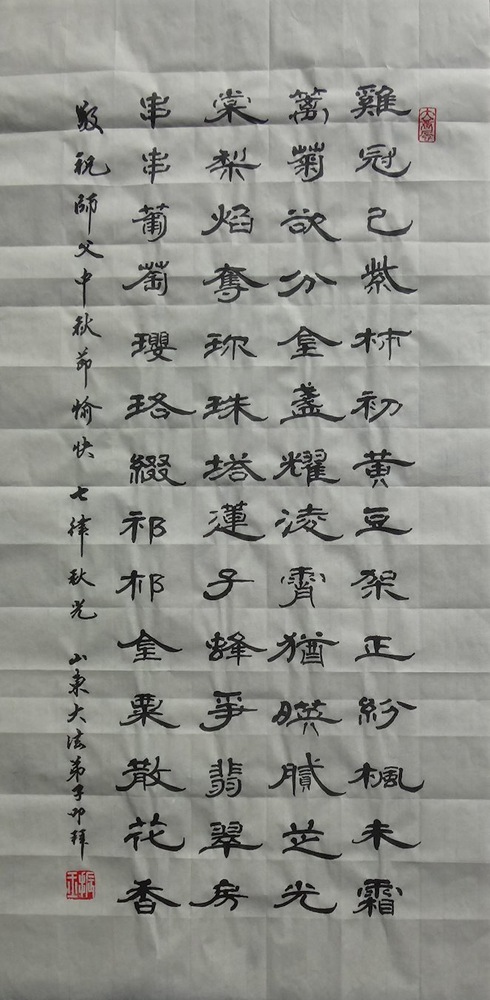 雞冠已紫柿初黃豆架正紛楓未霜
篱菊欲分金盞耀凌霄猶暎膩芷光
棠梨焰奪珎珠塔蓮子蜂爭翡翠房
串串葡萄瓔珞綴祁祁金粟散花香
敬祝師父中秋節愉快 七律秋光 山東大法弟子叩拜